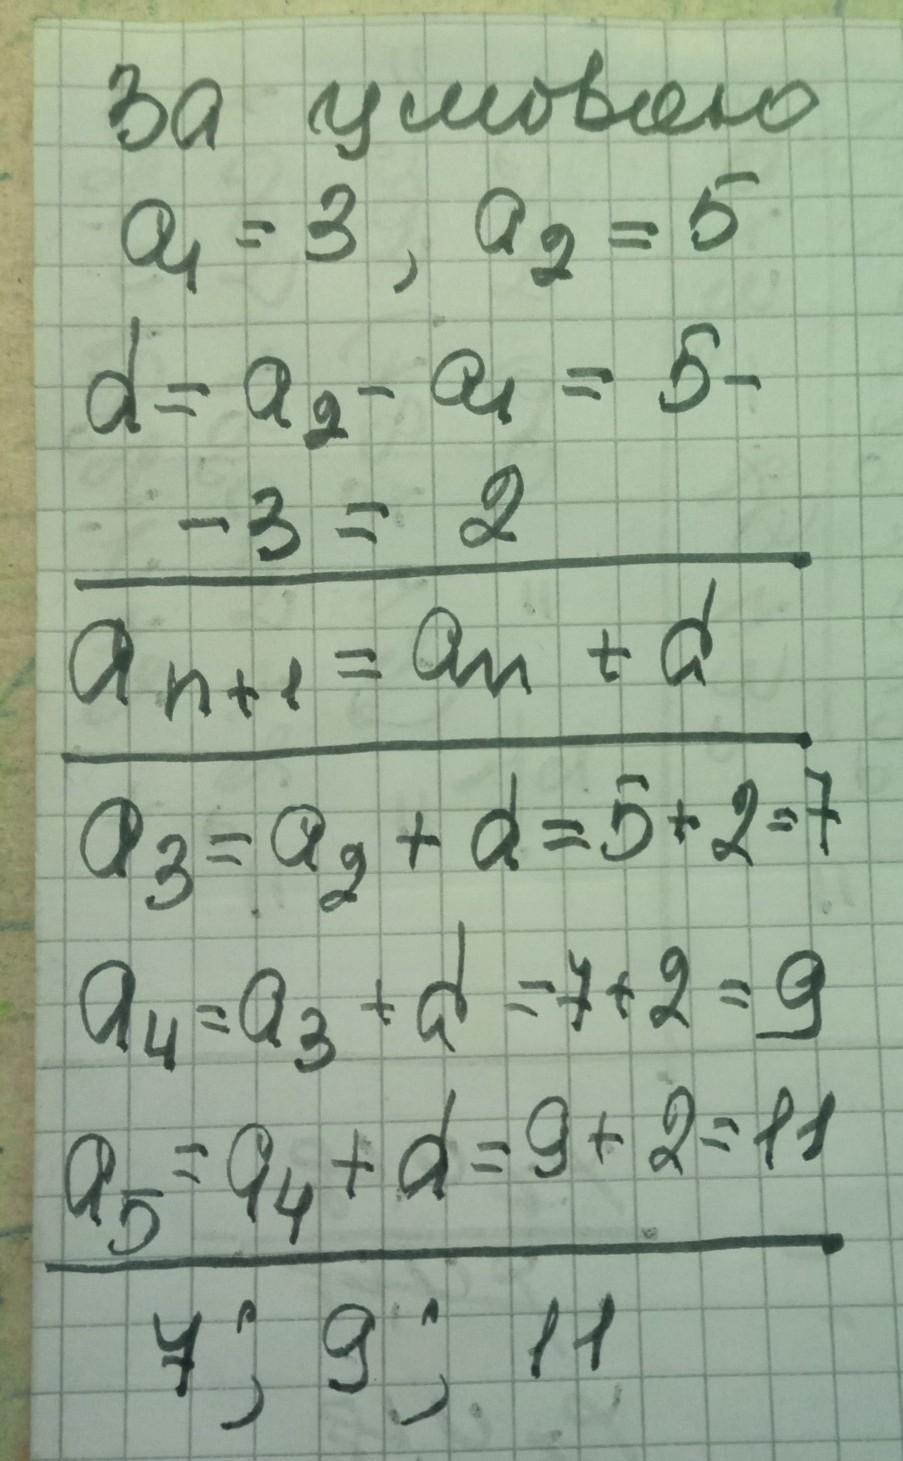 За умовою
a₁ = 3, a₂ = 5
d = a₂ - a₁ = 5 -
- 3 = 2
aₙ₊₁ = aₙ + d
a₃ = a₂ + d = 5 + 2 = 7
a₄ = a₃ + d = 7 + 2 = 9
a₅ = a₄ + d = 9 + 2 = 11
7; 9; 11